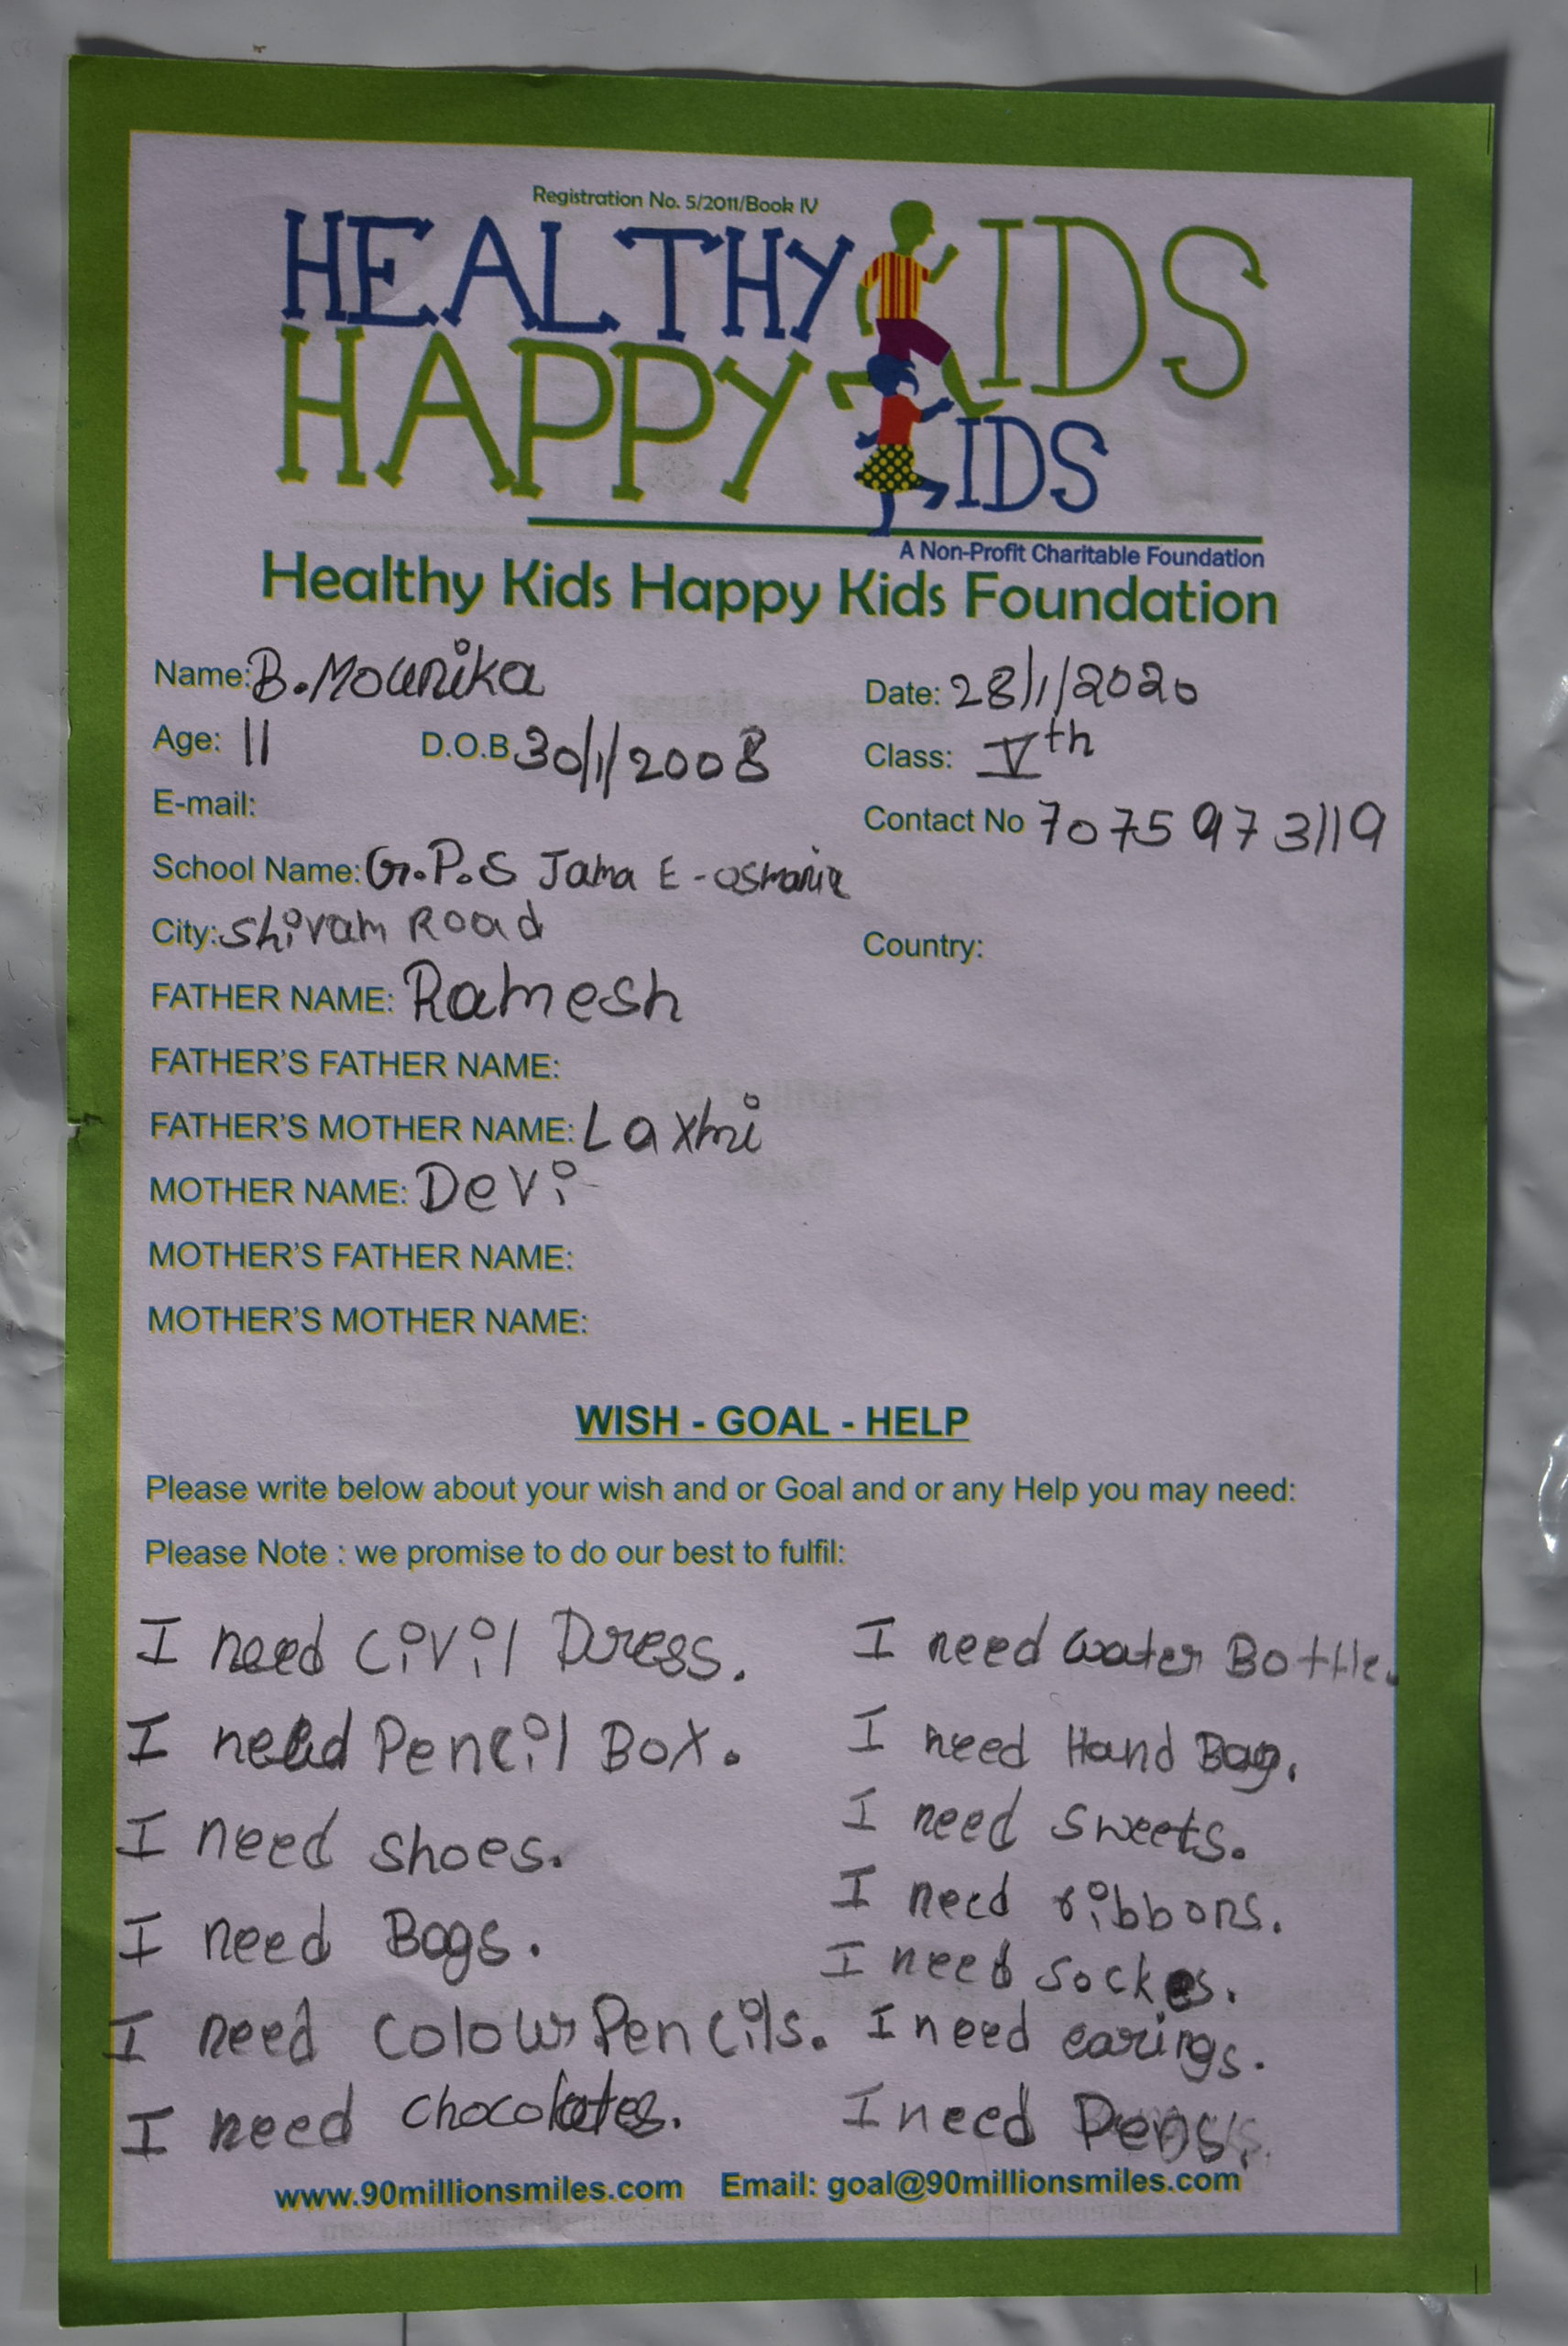 Registration No. 5/2011/Book IV
HEALTHY KIDS
HAPPY KIDS
A Non-Profit Charitable Foundation
Healthy Kids Happy Kids Foundation
Name: B. Mounika
Date: 28/1/2020
Age: 11 D.O.B. 30/1/2008
Class: Vth
E-mail:
Contact No 7075973119
School Name: G.P.S Jama E-osmania
City: Shivam Road
Country:
FATHER NAME: Ramesh
FATHER'S FATHER NAME:
FATHER'S MOTHER NAME: Laxmi
MOTHER NAME: Devi
MOTHER'S FATHER NAME:
MOTHER'S MOTHER NAME:
WISH - GOAL - HELP
Please write below about your wish and or Goal and or any Help you may need:
Please Note : we promise to do our best to fulfil:
I need Civil Dress.
I need Pencil Box.
I need shoes.
I need Bags.
I need Colour Pencils.
I need chocolates.
I need water Bottle.
I need Hand Bag.
I need sweets.
I need ribbons.
I need sockes.
I need earings.
I need Pens.
www.90millionsmiles.com Email: goal@90millionsmiles.com